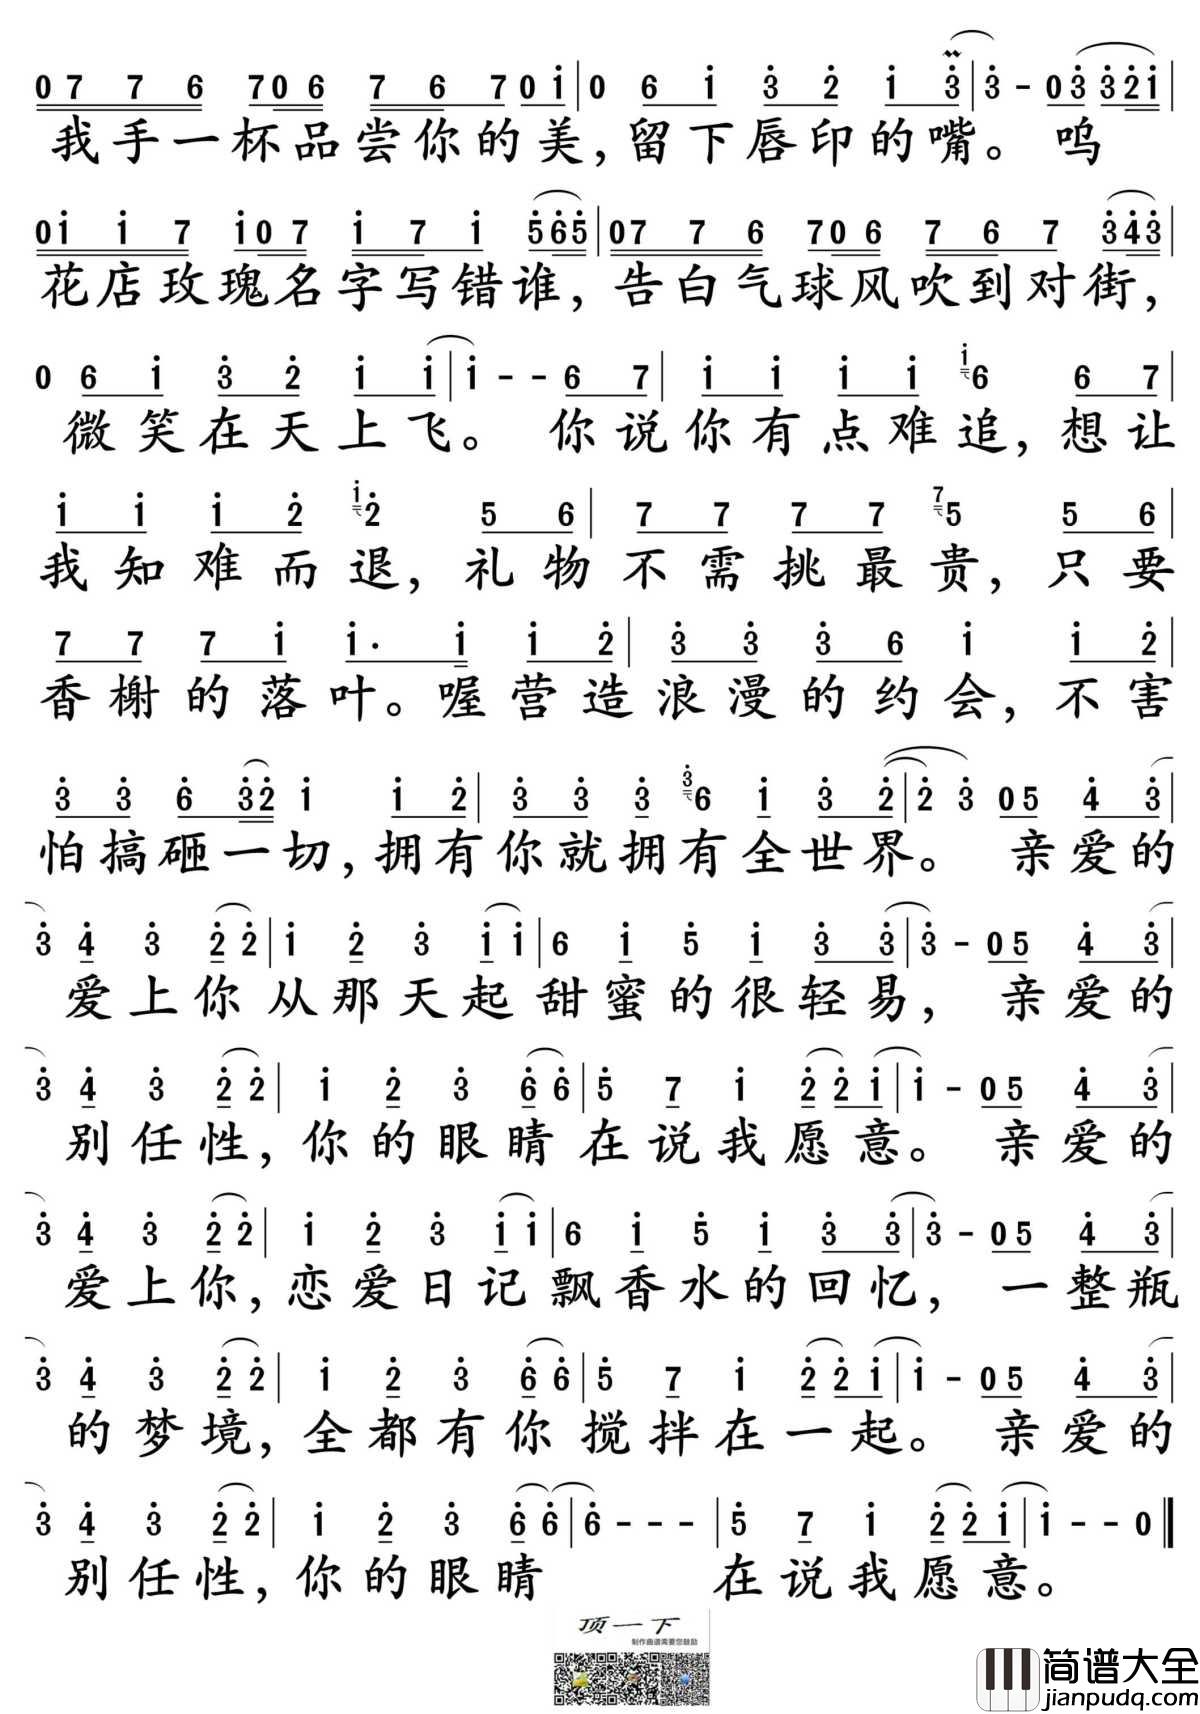 0 7 7 6 7 0 6 7 6 7 0 i | 0 6 i 3 2 i 3 | 3 - 0 3 3 2 i
我手一杯品尝你的美,留下唇印的嘴。呜
0 i i 7 i 0 7 i 7 i 5 6 5 | 0 7 7 6 7 0 6 7 6 7 3 4 3 |
花店玫瑰名字写错谁,告白气球风吹到对街,
0 6 i 3 2 i i | i - - 6 7 | i i i i i 6 6 7 |
微笑在天上飞。你说你有点难追,想让
i i i 2 i 2 5 6 | 7 7 7 7 7 5 5 6 |
我知难而退,礼物不需挑最贵,只要
7 7 7 i i· i i 2 | 3 3 3 6 i i 2 |
香榭的落叶。喔营造浪漫的约会,不害
3 3 6 3 2 i i 2 | 3 3 3 3 6 i 3 2 | 2 3 0 5 4 3 |
怕搞砸一切,拥有你就拥有全世界。亲爱的
3 4 3 2 2 | i 2 3 i i | 6 i 5 i 3 3 | 3 - 0 5 4 3 |
爱上你从那天起甜蜜的很轻易,亲爱的
3 4 3 2 2 | i 2 3 6 6 | 5 7 i 2 2 i | i - 0 5 4 3 |
别任性,你的眼睛在说我愿意。亲爱的
3 4 3 2 2 | i 2 3 i i | 6 i 5 i 3 3 | 3 - 0 5 4 3 |
爱上你,恋爱日记飘香水的回忆,一整瓶
3 4 3 2 2 | i 2 3 6 6 | 5 7 i 2 2 i | i - 0 5 4 3 |
的梦境,全都有你搅拌在一起。亲爱的
3 4 3 2 2 | i 2 3 6 6 | 6 - - - | 5 7 i 2 2 i | i - - 0 ‖
别任性,你的眼睛在说我愿意。
顶一下
制作曲谱需要您鼓励
简谱大全
jianpudq.com